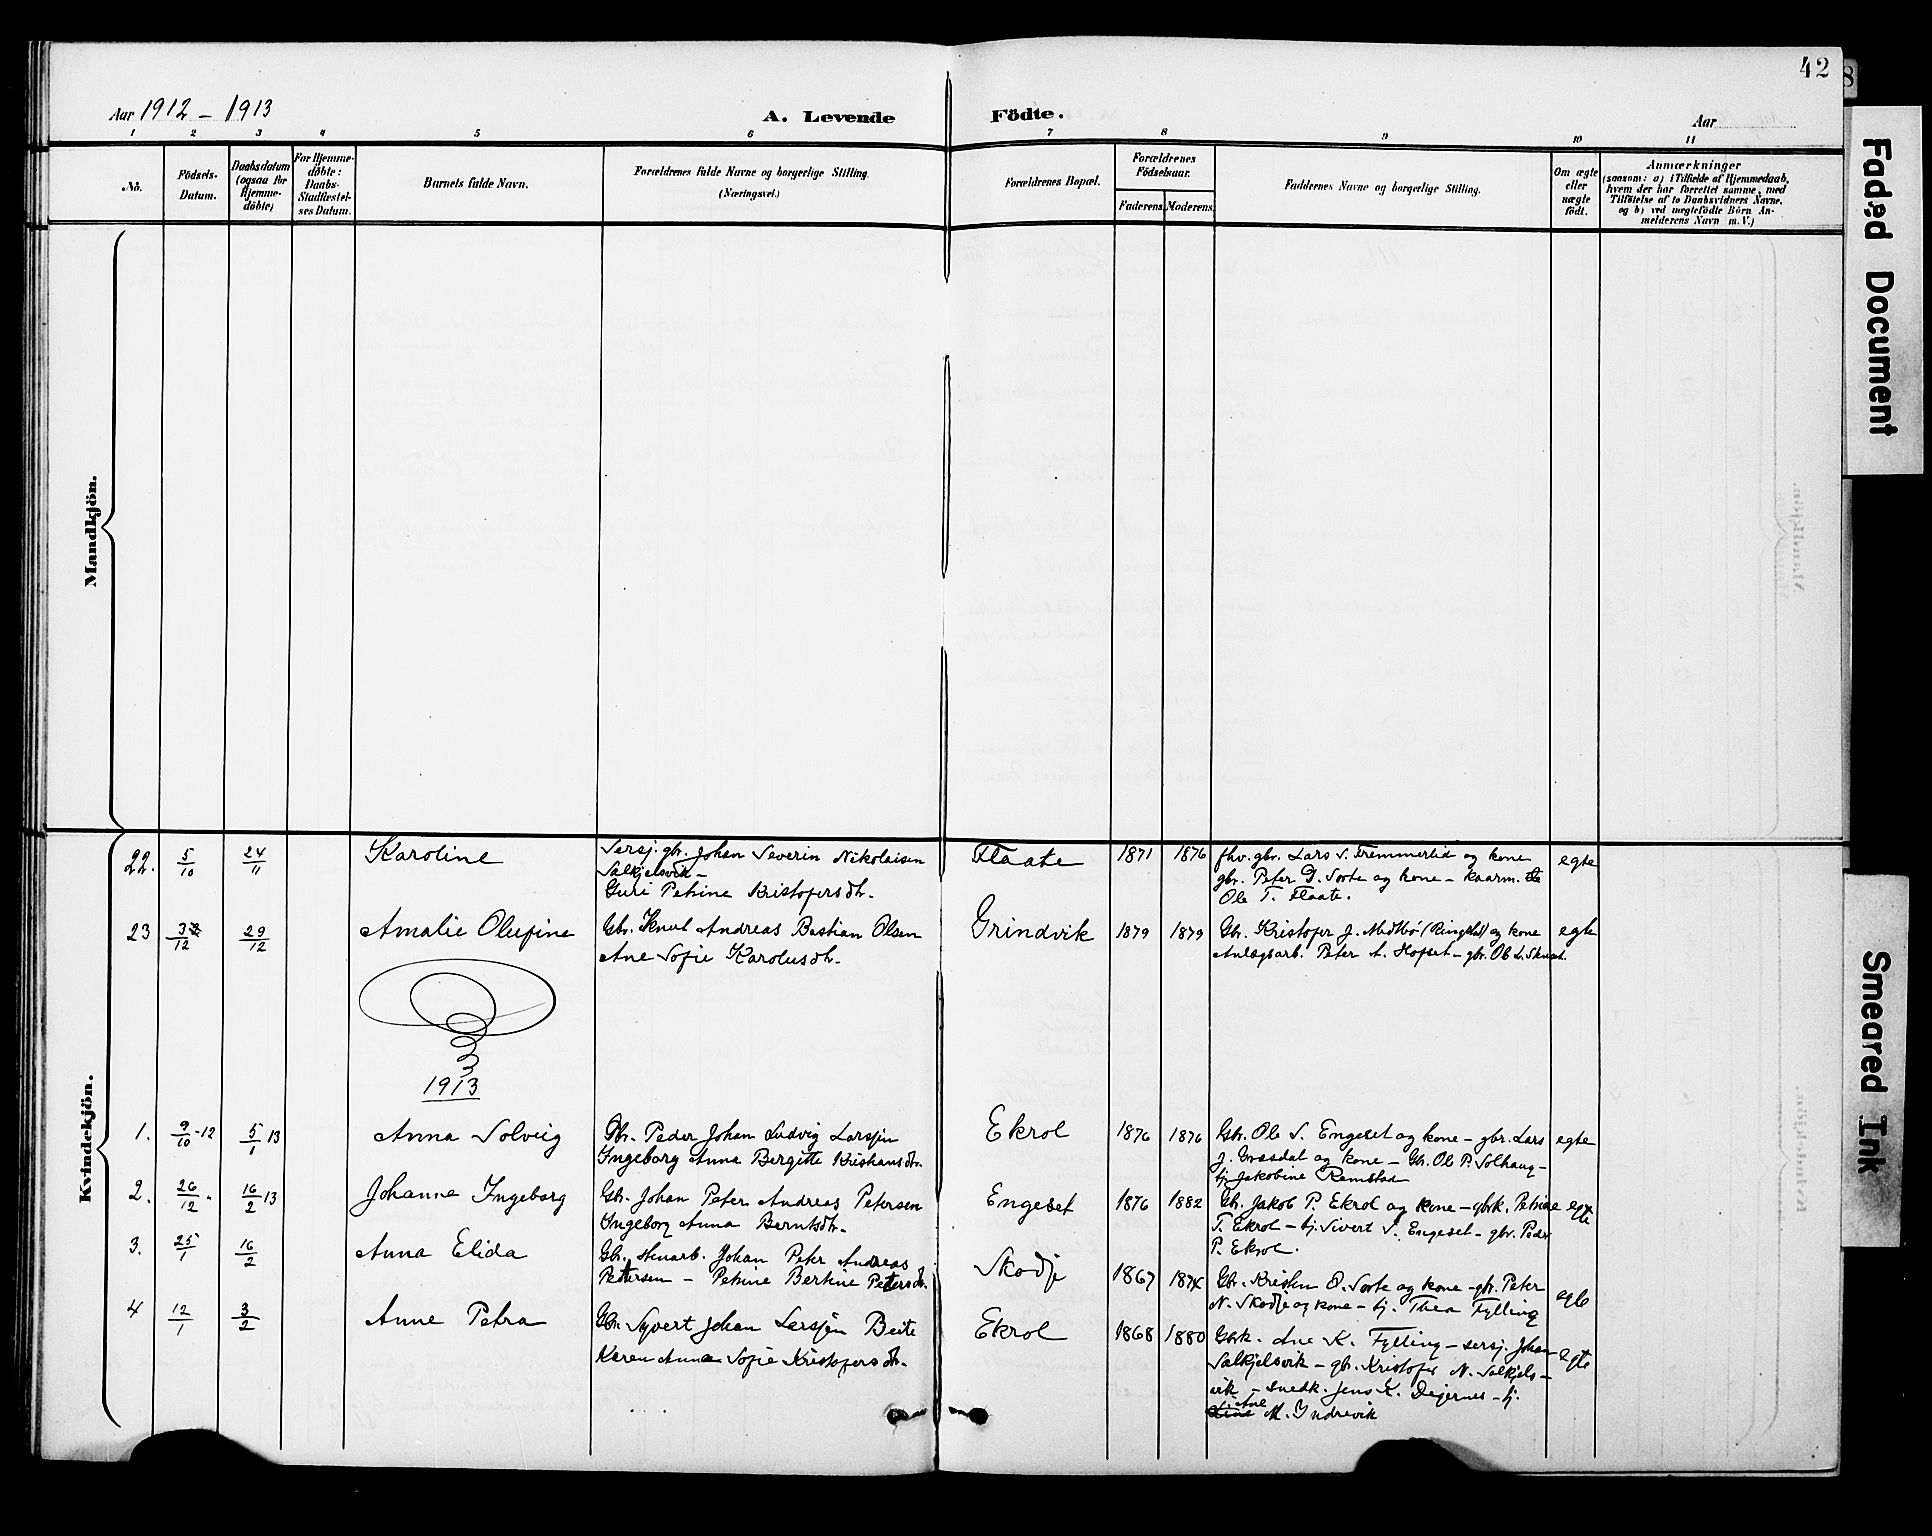 42
Aar 1912 - 1913
A. Levende Födte.
Aar
1 2 3 4 5 6 7 8 9 10 11
No.
Födsels-Datum.
Daabsdatum (ogsaa for Hjemme-döbte)
For Hjemme-döbte: Daabs-Stadfæstel-ses Datum.
Barnets fulde Navn.
Forældrenes fulde Navne og borgerlige Stilling.
(Næringsvei.)
Forældrenes Bopæl.
Forældrenes Födselsaar.
Faderens. Moderens.
Faddernes Navne og borgerlige Stilling.
Om ægte eller uægte födt.
Anmærkninger
(saasom: a) i Tilfælde af Hjemmedaab,
hvem der har forrettet samme, med
Tilföielse af to Daabsvidners Navne,
og b) ved uægtefödte Börn An-
melderens Navn m. V.)
Mandkjön.
Kvindekjön.
22. 5/10 24/11 Karoline
Sersj. gbr. Johan Severin Nikolaisen
Salkjelsvik -
Guri Petrine Kristofersdtr.
Flaate 1871 1876
fhv. gbr. Lars S. Fremmerlid og kone
gbr. Peter D. Sorte og kone - kaarm.
Ole T. Flaate.
egte
23 3/12 29/12 Amalie Olufine
Gbr. Knut Andreas Bastian Olsen
Ane Sofie Karolusdtr.
Grindvik 1879 1879
Gbr. Kristofer J. (Ringstad) og kone
Anlægsarb. Peter A. Hofset - gbr. Ole L.
egte
1913
1. 9/10 - 12 5/1 13 Anna Solveig
Gbr. Peder Johan Ludvig Larssen
Ingeborg Anna Bergitte Kristiansdtr.
Ekrol 1876 1876
Gbr. Ole S. Engeset og kone - gbr. Lars
J. Grasdal og kone - Gbr. Ole P. Solhaug -
tj. Jakobine Ramstad
egte
2. 26/12 " 16/2 13 Johanne Ingeborg
Gbr. Johan Peter Andreas Petersen
Ingeborg Anna Berntsdtr.
Engeset 1876 1882
Gbr. Jakob P. Ekrol og kone - gbrk. Petrine
T. Ekrol - tj. Sivert S. Engeset - gbr. Peder
P. Ekrol.
egte
3. 25/1 16/2 Anna Elida
Gbr. stenarb. Johan Peter Andreas
Pettersen - Petrine Bertine Petersdtr.
Skodje 1867 1874
Gbr. Kristen O. Sorte og kone - gbr. Peter
N. Skodje og kone - tj. Thea Fylling
egte
4 12/1 3/2 Anne Petra
Gbr. Syvert Johan Larssen Beite
Karen Anna Sofie Kristofersdtr.
Ekrol 1868 1880
Gbrk. Ane K. Fylling - sersj. Johan
Salkjelsvik - gbr. Kristofer N. Salkjels-
vik - snedk. Jens K. Digernes - tj.
M. Indrevik
egte
Faded Document
Smeared Ink